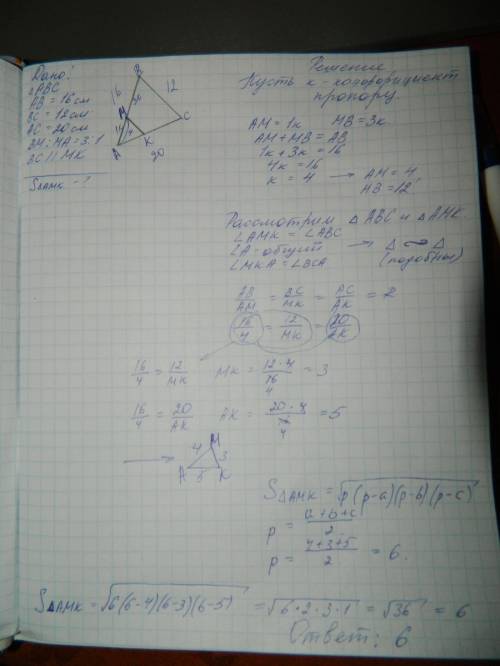 Дано:
△ABC
AB = 16 см
BC = 12 см
AC = 20 см
BM : MA = 3:1
BC || MK
S△AMK - ?
B
16
3к
12
M
1к
C
A
K
20
Решение
Пусть к - коэффициент
пропорц.
AM = 1к MB = 3к
AM + MB = AB
1к + 3к = 16
4к = 16
к = 4 → AM = 4
MB = 12
Рассмотрим △ABC и △AMK
∠AMK = ∠ABC
∠A = общий → △ ∼ △
∠MKA = ∠BCA (подобны)
AB/AM = BC/MK = AC/AK = 2
16/4 = 12/MK = 20/AK
16/4 = 12/MK MK = 12·4/16 = 3
4
16/4 = 20/AK AK = 20·4/16 = 5
4
→ M
4 3
A 5 K
S△AMK = √p(p-a)(p-b)(p-c)
p = a+b+c/2
p = 4+3+5/2 = 6.
S△AMK = √6(6-4)(6-3)(6-5) = √6·2·3·1 = √36 = 6
Ответ: 6